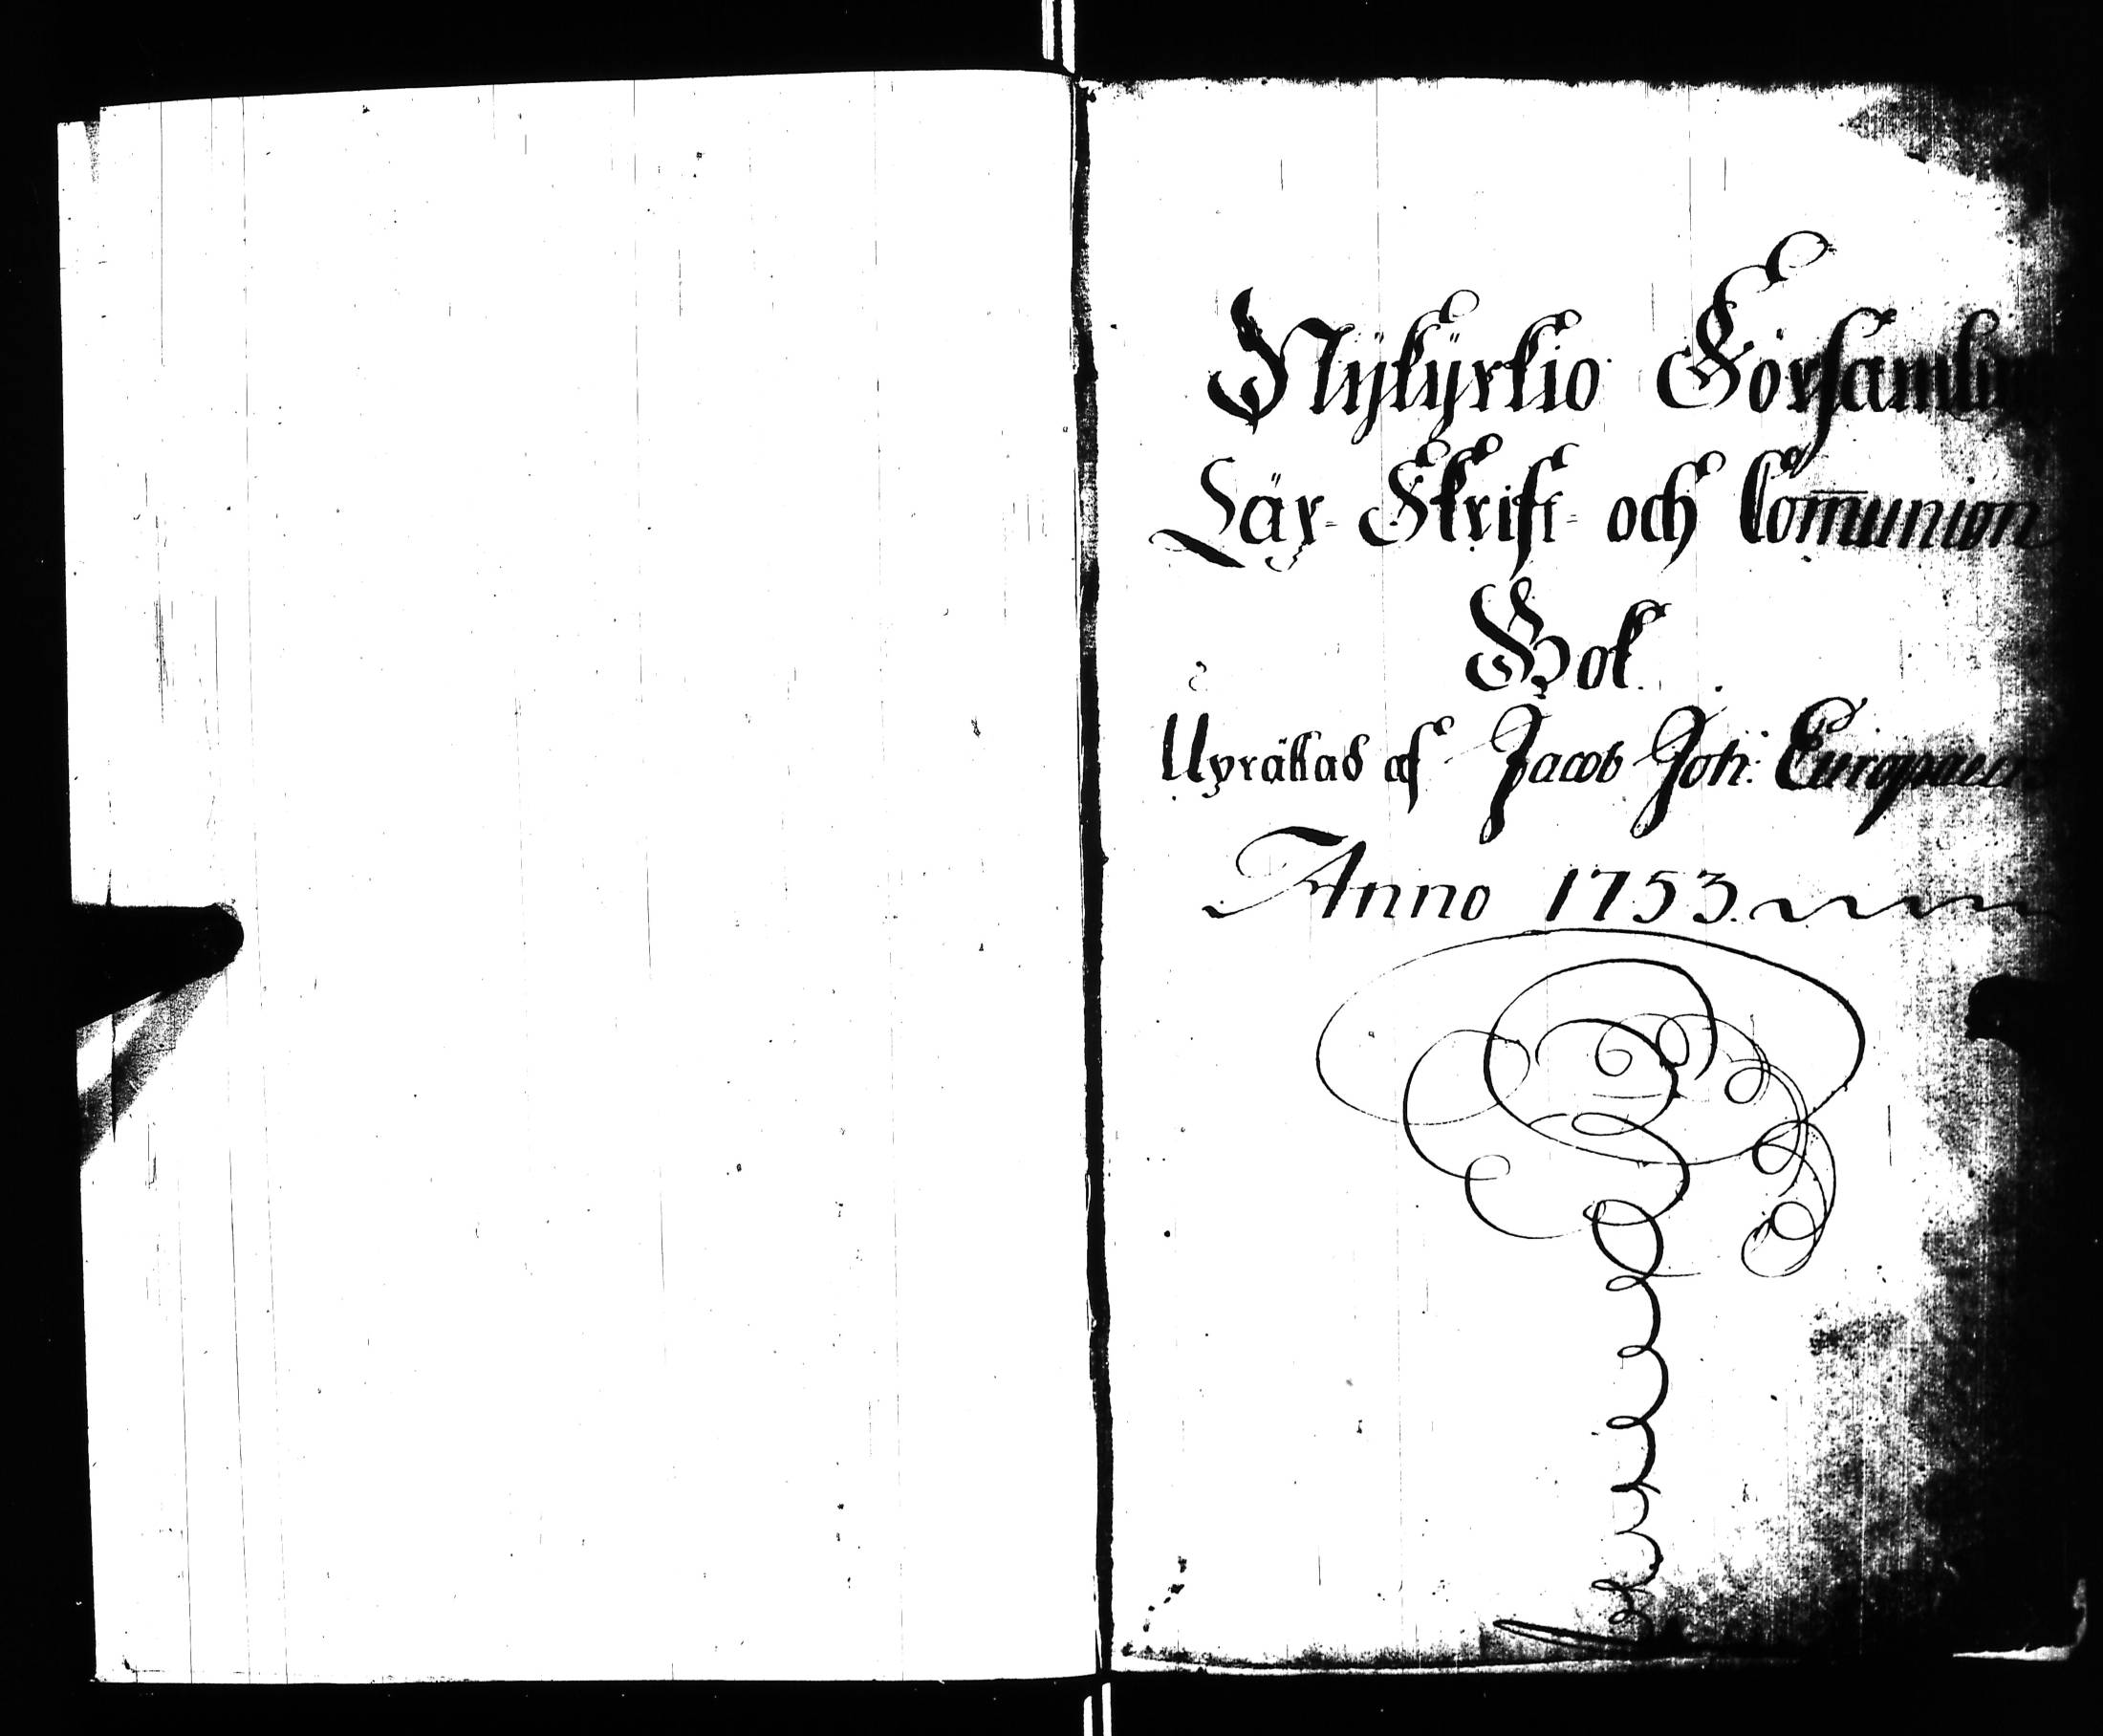 Nÿkÿrkio Församling
Lär- Skrift- och Com̅union
Bok.
Uprättad af Jacob Joh: Europaeus
Anno 1753.